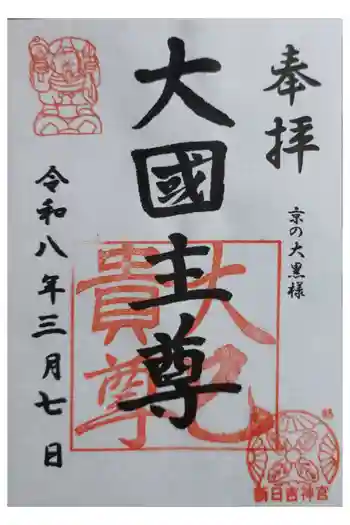 奉拝
京の大黒様
大國主尊
令和八年三月七日
大己貴尊
新日吉神宮